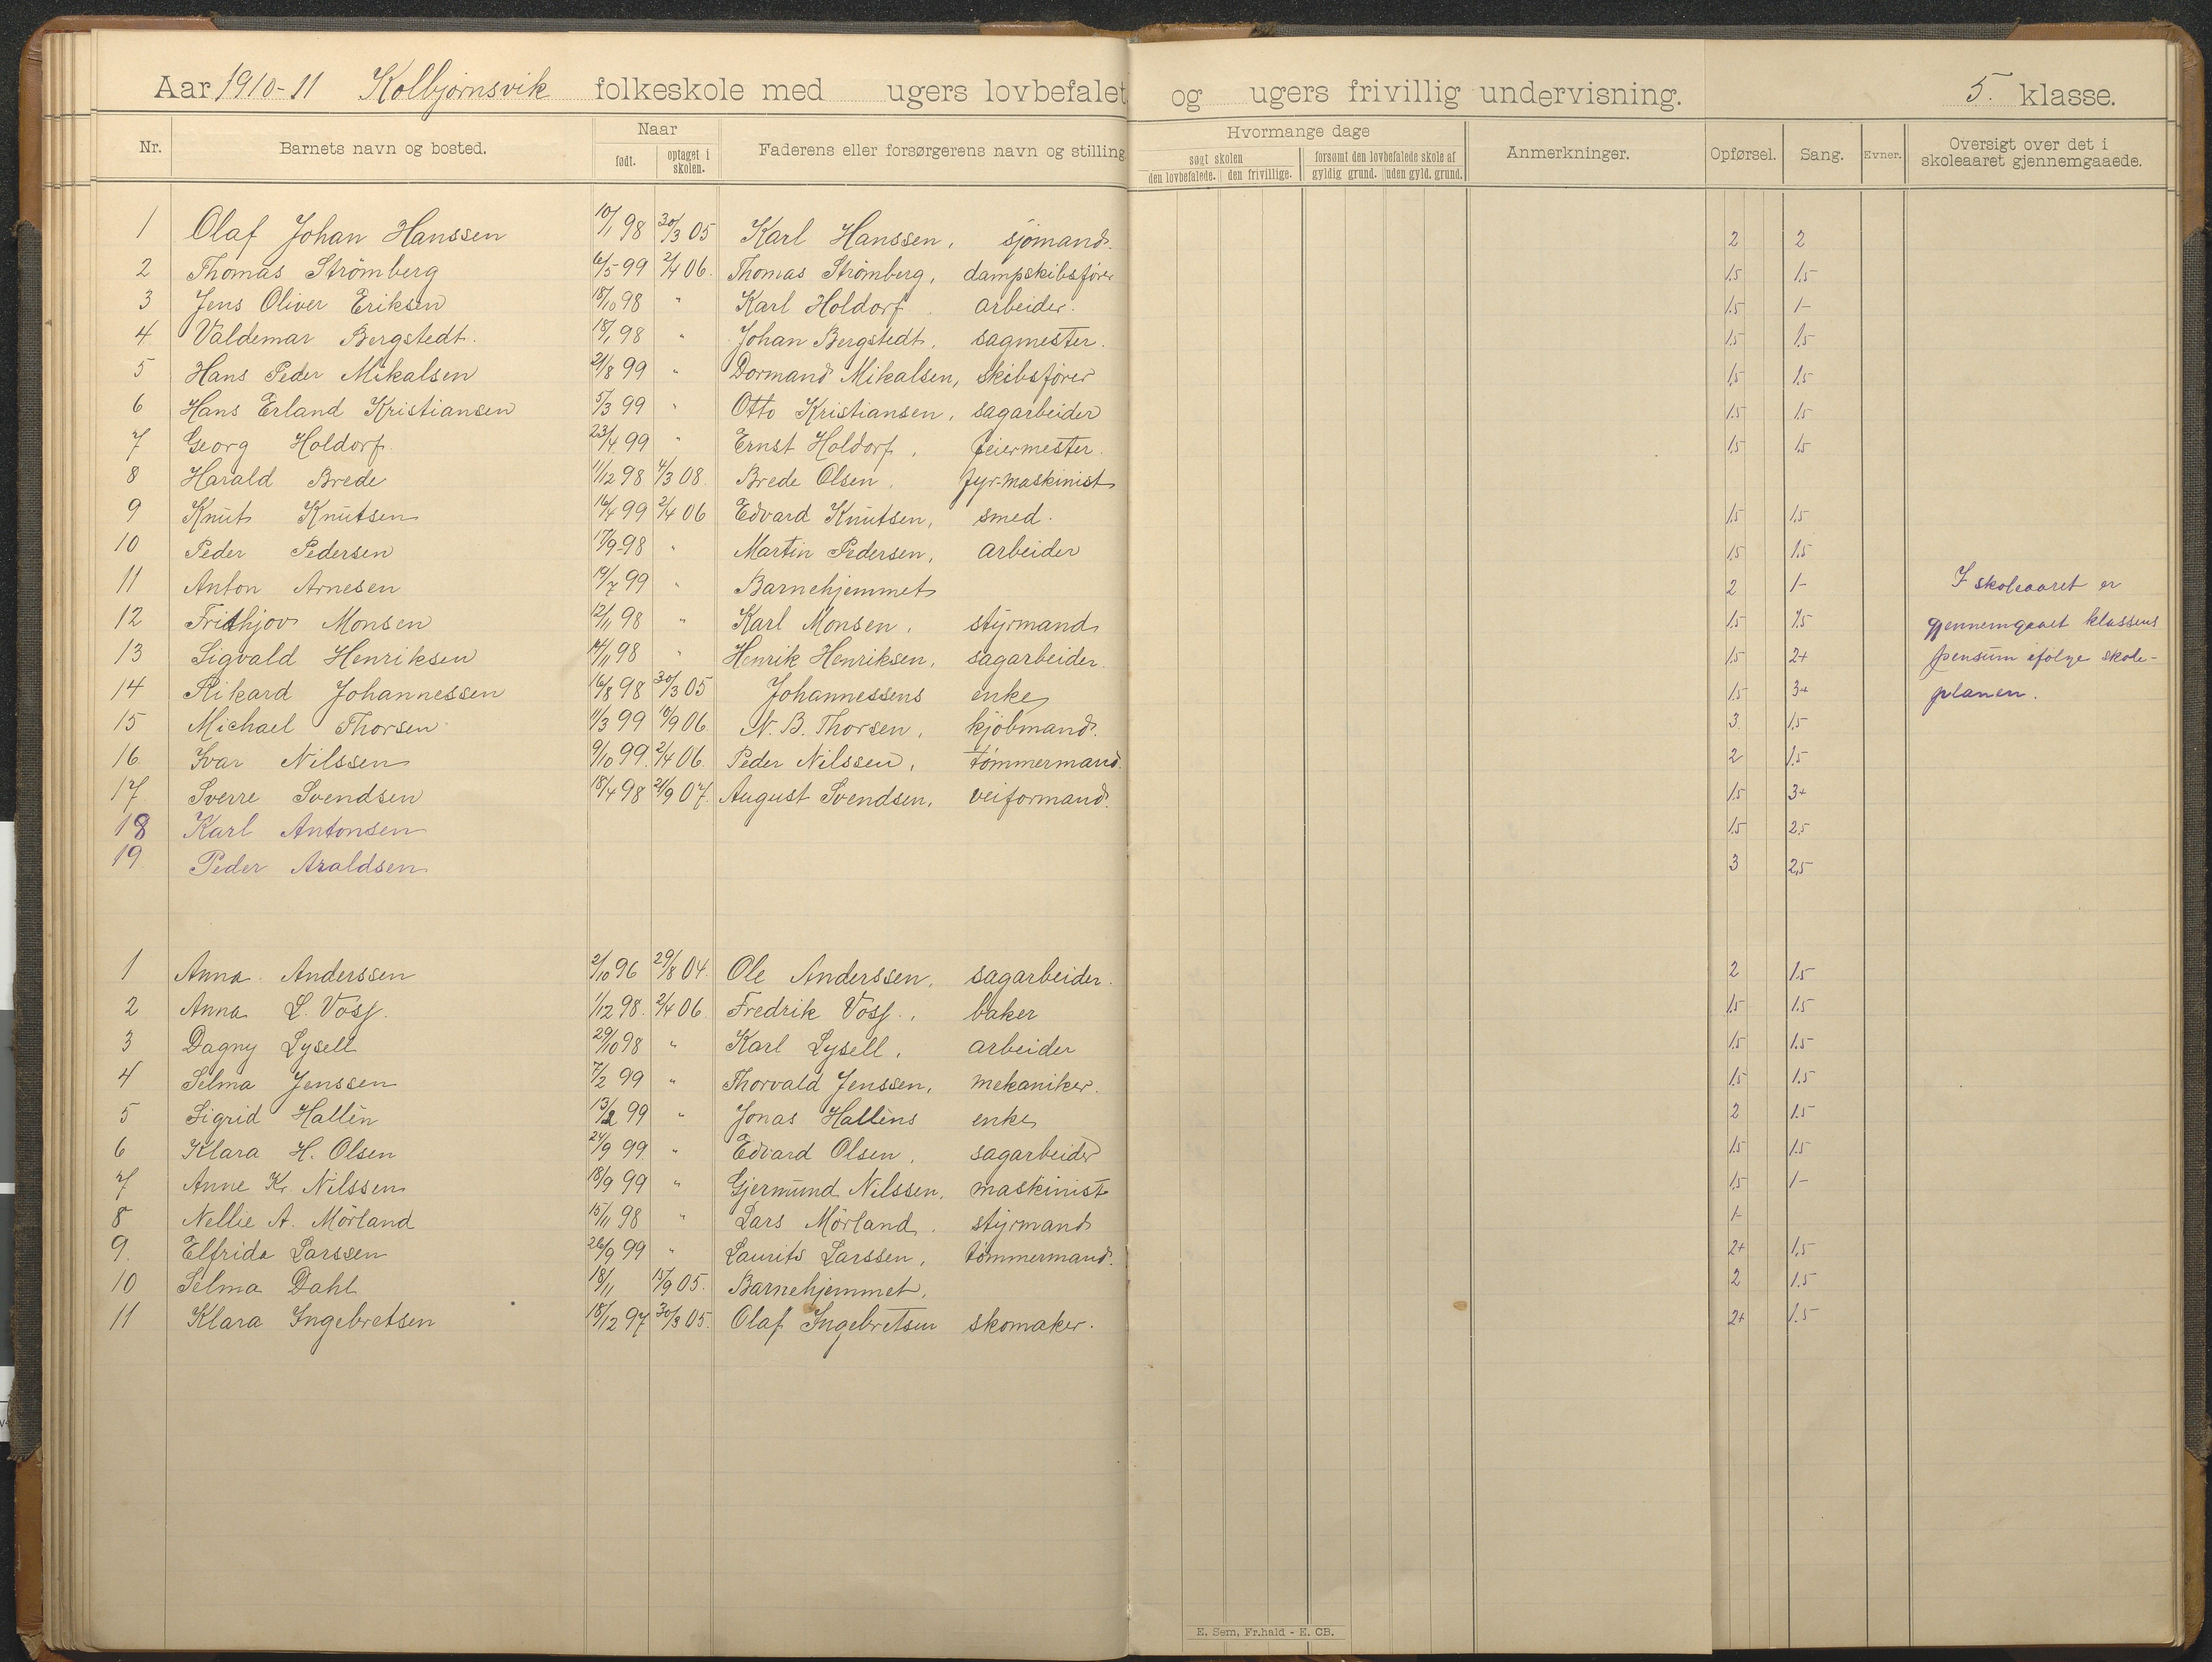 Aar 1910-11 Kolbjørnsvik folkeskole med ugers lovbefalet og ugers frivillig undervisning. 5. klasse.
Nr. Barnets navn og bosted. Naar født. optaget i skolen. Faderens eller forsørgerens navn og stilling Hvormange dage søgt skolen den lovbefalede. den frivillige. forsømt den lovbefalede skole af gyldig grund. uden gyld. grund. Anmerkninger. Opførsel. Sang. Evner. Oversigt over det i skoleaaret gjennemgaaede.
1 Olaf Johan Hanssen 10/1 98 30/3 05 Karl Hanssen, sjømand. 2 2
2 Thomas Strømberg 6/5 99 2/4 06. Thomas Strømberg, dampskibsfører 1.5 1.5
3 Jens Oliver Eriksen 18/10 98 " Karl Holdorf. arbeider. 1.5 1-
4 Valdemar Bergstedt. 18/1 98 " Johan Bergstedt, sagmester. 1.5 1.5
5 Hans Peder Mikalsen 21/8 99 " Dormand Mikalsen, skibsfører 1.5 1.5
6 Hans Erland Kristiansen 5/3 99 " Otto Kristiansen, sagarbeider 1.5 1.5
7 Georg Holdorf. 23/4 99 " Ernst Holdorf, feiermester. 1.5 1.5
8 Harald Brede 11/12 98 4/3 08. Brede Olsen. fyr-maskinist
9 Knut Knutsen 16/4 99 2/4 06 Edvard Knutsen, smed. 1.5 1.5
10 Peder Pedersen 17/9-98 " Martin Pedersen, arbeider 1.5 1.5
11 Anton Arnesen 19/7 99 " Barnehjemmet 2 1- I skoleaaret er
12 Frithjov Monsen 12/11 98 " Karl Monsen, styrmand 1.5 1.5 gjennemgaaet klassens
13 Sigvald Henriksen 14/11 98 " Henrik Henriksen, sagarbeider. 1.5 2+ pensum ifølge skole-
14 Rikard Johannessen 16/8 98 30/3 05 Johannessens enke 1.5 3+ planen.
15 Michael Thorsen 11/3 99 10/9 06. N. B. Thorsen, kjøbmand. 3 1.5
16. Ivar Nilssen 9/10 99. 2/4 06. Peder Nilssen, tømmermand. 2 1.5
17. Sverre Svendsen 18/4 98 21/9 07. August Svendsen, veiformand. 1.5 3+
18 Karl Antonsen 1.5 2.5
19 Peder Araldsen 3 2,5
1 Anna Anderssen 2/10 96 29/8 04. Ole Anderssen, sagarbeider. 2 1.5
2 Anna L. Voss. 1/12 98. 2/4 06. Fredrik Voss., baker 1.5 1.5
3 Dagny Lysell 29/10 98 " Karl Lysell, arbeider 1.5 1.5
4 Selma Jenssen 7/2 99 " Thorvald Jenssen, mekaniker. 1.5 1.5
5 Sigrid Hallén 13/2 99 " Jonas Halléns enke 2 1.5
6 Klara H. Olsen 24/9 99 " Edvard Olsen, sagarbeider 1.5 1.5
7 Anne K. Nilssen 18/9 99 " Gjermund Nilssen, maskinist 1.5 1-
8 Nellie A. Mørland 15/11 98 " Lars Mørland, styrmand 1-
9. Elfrida Larssen 26/9 99 " Laurits Larssen, tømmermand. 2+ 1.5
10 Selma Dahl 18/11 15/9 05. Barnehjemmet. 2 1.5
11 Klara Ingebretsen 18/12 97 30/3 05. Olaf Ingebretsen skomaker. 2+ 1.5
E. Sem, Fr.hald - E. CB.